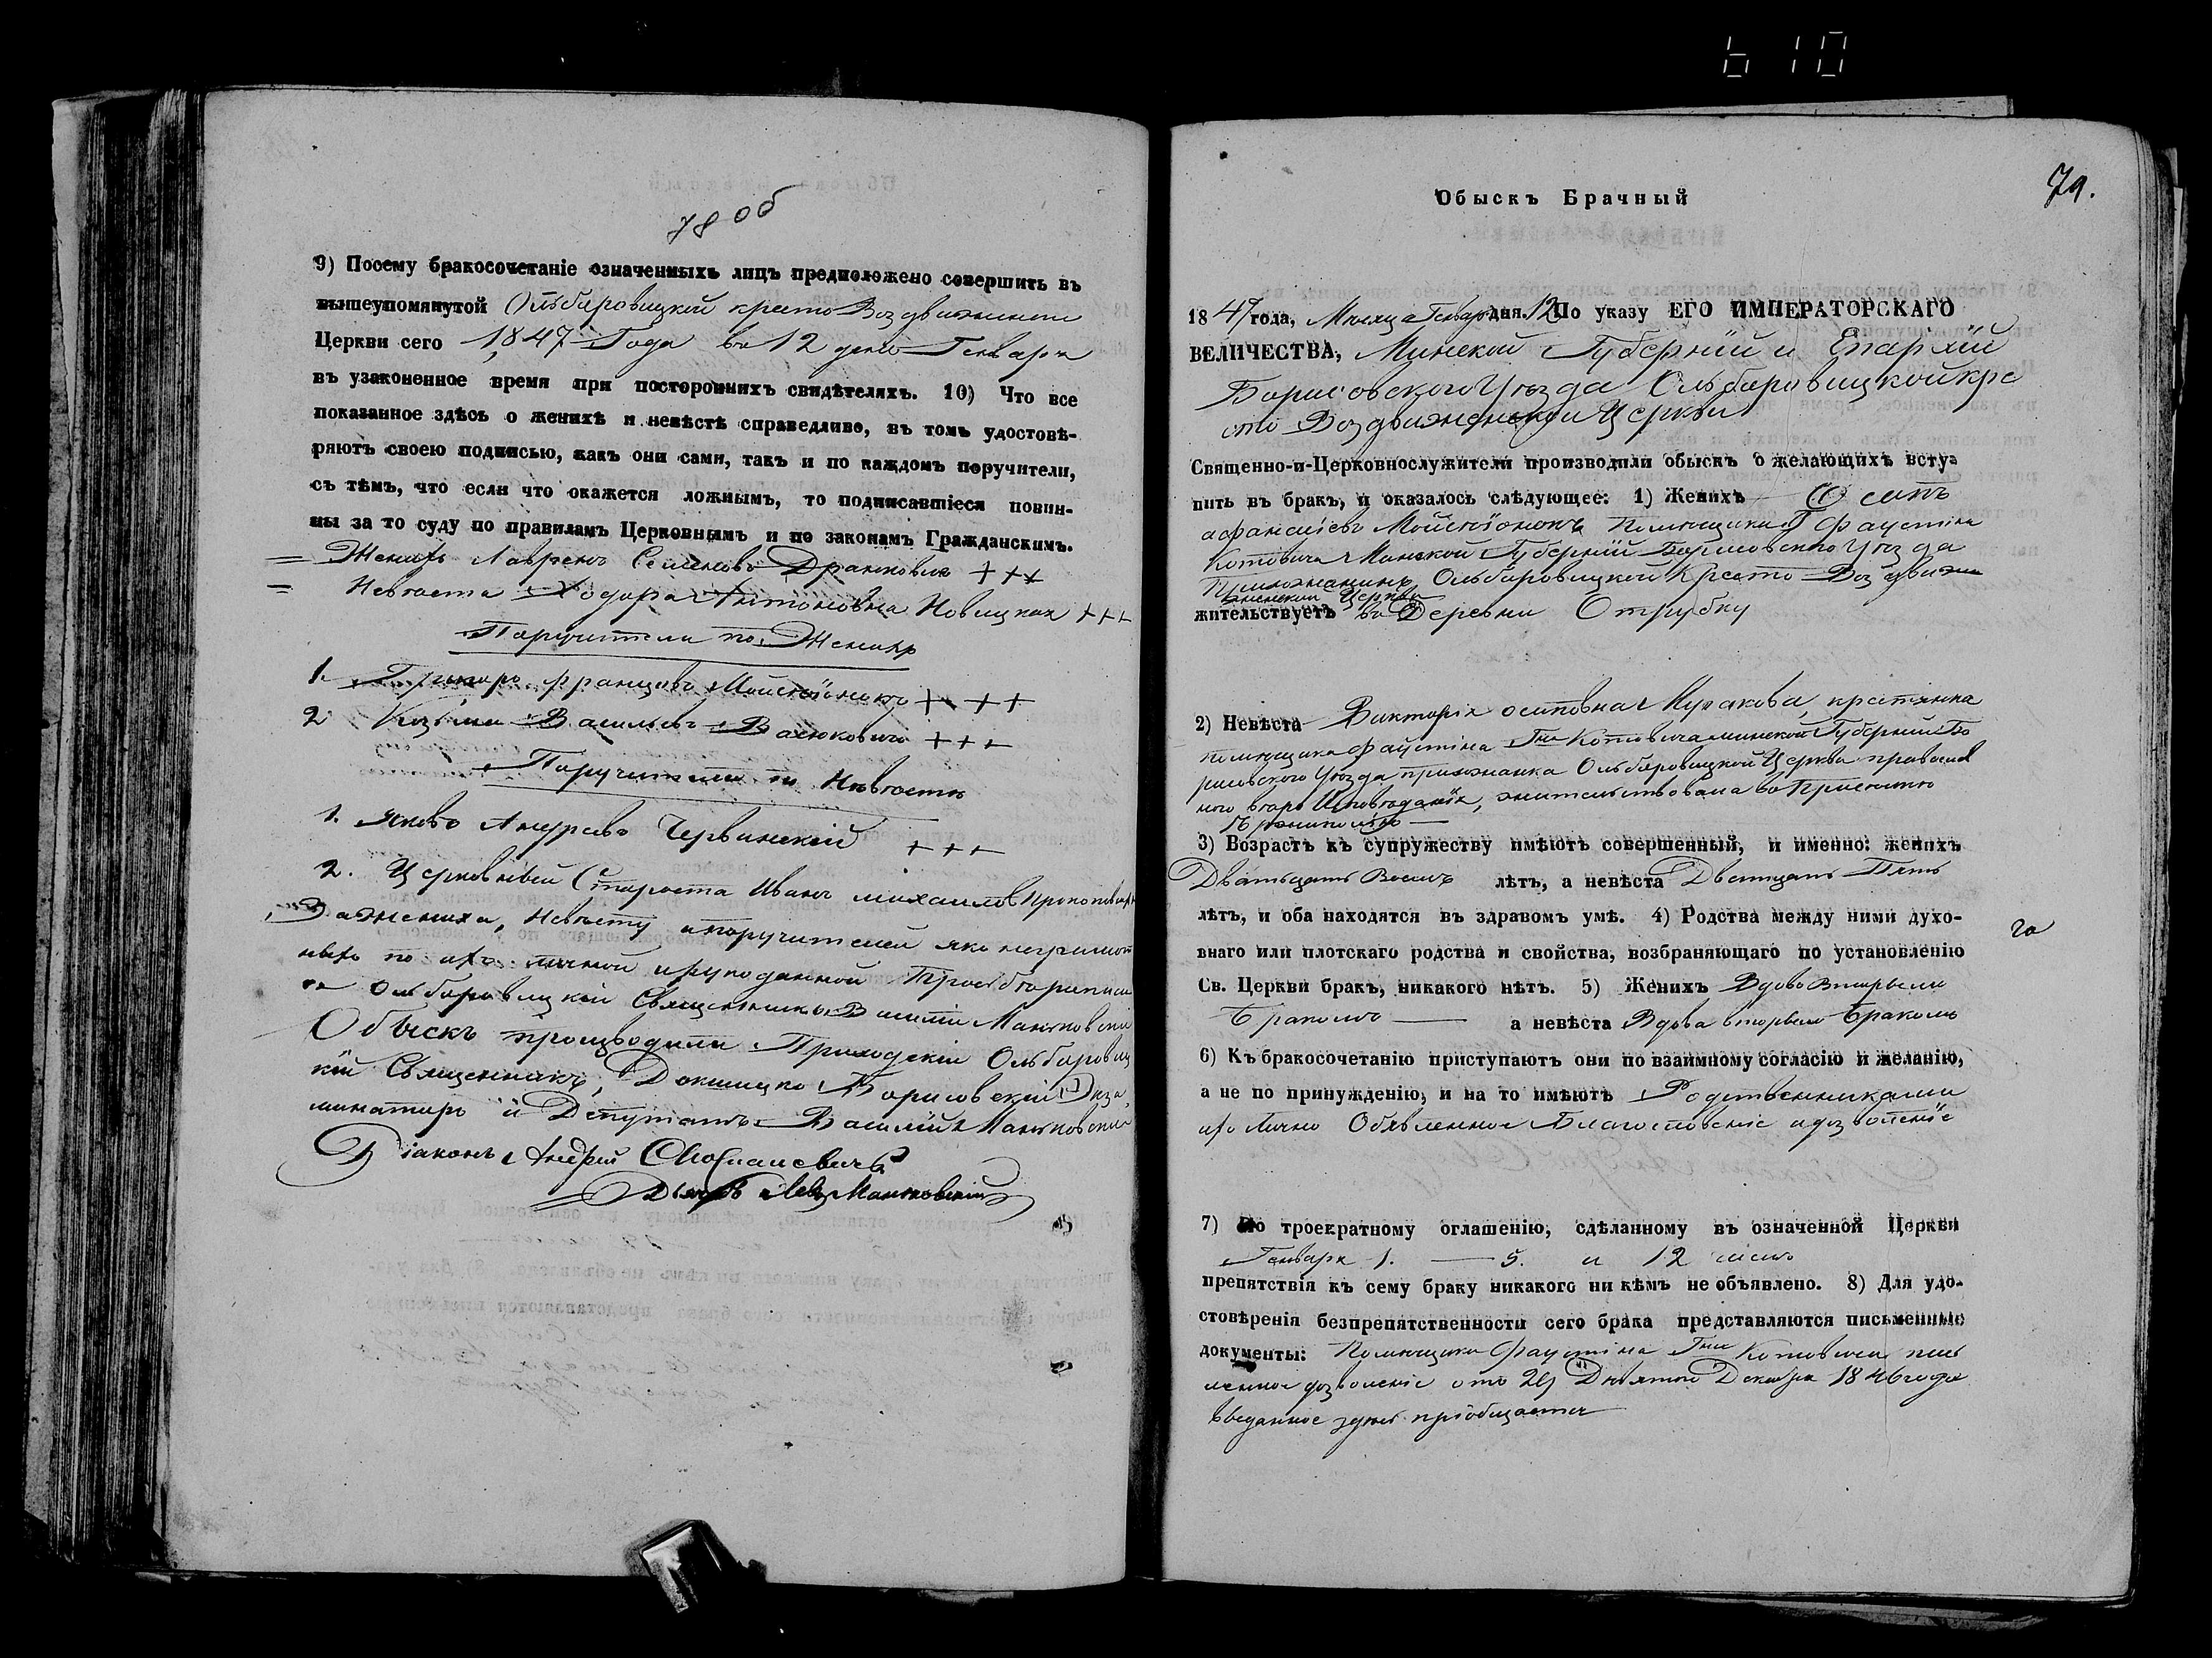 78 об
9) Посему бракосочетаніе означенныхъ лицъ предположено совершить въ
вышеупомянутой Ольбаровицкой кресто Воздвиженской
Церкви сего 1847 Года въ 12 день Генваря
въ узаконенное время при постороннихъ свидѣтеляхъ. 10) Что все
показанное здѣсь о женихѣ и невѣстѣ справедливо, въ томъ удостовѣ-
ряютъ своею подписью, какъ они сами, такъ и по каждомъ поручители,
съ тѣмъ, что если что окажется ложнымъ, то подписавшіеся повин-
ны за то суду по правиламъ Церковнымъ и по законамъ Гражданскимъ.
Женихъ Лавренъ Семеновъ +++
Невѣста Ходора Антоновна Новицкая +++
Поручители по Женихѣ
1. Францовъ +++
2 Козьма Васильевъ Васюковичъ +++
Поручители по Невѣстѣ
1. Яковъ Андреевъ Червинскій +++
2. Церковный Староста Иванъ Михаиловъ
За жениха, Невѣсту и поручителей яко неграмот
ныхъ по ихъ личной и рукоданной Прозьбѣ
Ольбаровицкій Священникъ Василій
Обыскъ производили Приходскій Ольбаровиц
кій Священникъ, Докшицко Борисовскій Экза
минаторъ и Депутатъ Василій
Діаконъ Андрей
Дьячекъ
610
79.
Обыскъ Брачный
1847 года, Мѣсяца Генваря дня. 12 По указу ЕГО ИМПЕРАТОРСКАГО
ВЕЛИЧЕСТВА, Минской Губерніи и Епархіи
Борисовского Уѣзда Ольбаровицкой кре
сто Воздвиженской Церкви
Священно-и-Церковнослужители производили обыскъ о желающихъ всту-
пить въ бракъ, и оказалось слѣдующее: 1) Женихъ Осипъ
Афанасіевъ Помѣщика Г Фаустина
Котовича Минской Губерніи Борисовского Уѣзда
Прихожанинъ Ольбаровицкой Кресто Воздвиж
женской Церкви
жительствуетъ въ Деревни Отрубку
2) Невѣста Викторія Осиповна Куракова, крестянка
помѣщика Фаустина Гна Котовича Минской Губерніи Бо
рисовского Уѣзда прихожанка Ольбаровицкой Церкви православ
ного вѣро Исповѣданія, жительствовала во
3) Возрастъ къ супружеству имѣютъ совершенный, и именно: женихъ
Дватцать Восемъ лѣтъ, а невѣста Дватцать Пять
лѣтъ, и оба находятся въ здравомъ умѣ. 4) Родства между ними духо-
внаго или плотскаго родства и свойства, возбраняющаго по установленію
Св. Церкви бракъ, никакого нѣтъ. 5) Женихъ Вдовъ Вторымъ
Бракомъ а невѣста Вдова вторымъ Бракомъ
6) Къ бракосочетанію приступаютъ они по взаимному согласію и желанію,
а не по принужденію, и на то имѣютъ Родственниками
ихъ Лично Обявленное Благословеніе и дозволеніе
7) По троекратному оглашенію, сдѣланному въ означенной Церкви
Генваря 1. — 5. и 12 числъ
препятствія къ сему браку никакого ни кѣмъ не объявлено. 8) Для удо-
стовѣренія безпрепятственности сего брака представляются письменные
документы: Помѣщика Фаустина Гна Котовича пис
менное дозволеніе отъ 29 Декабря 1846 года
выданное здесь пріобщается